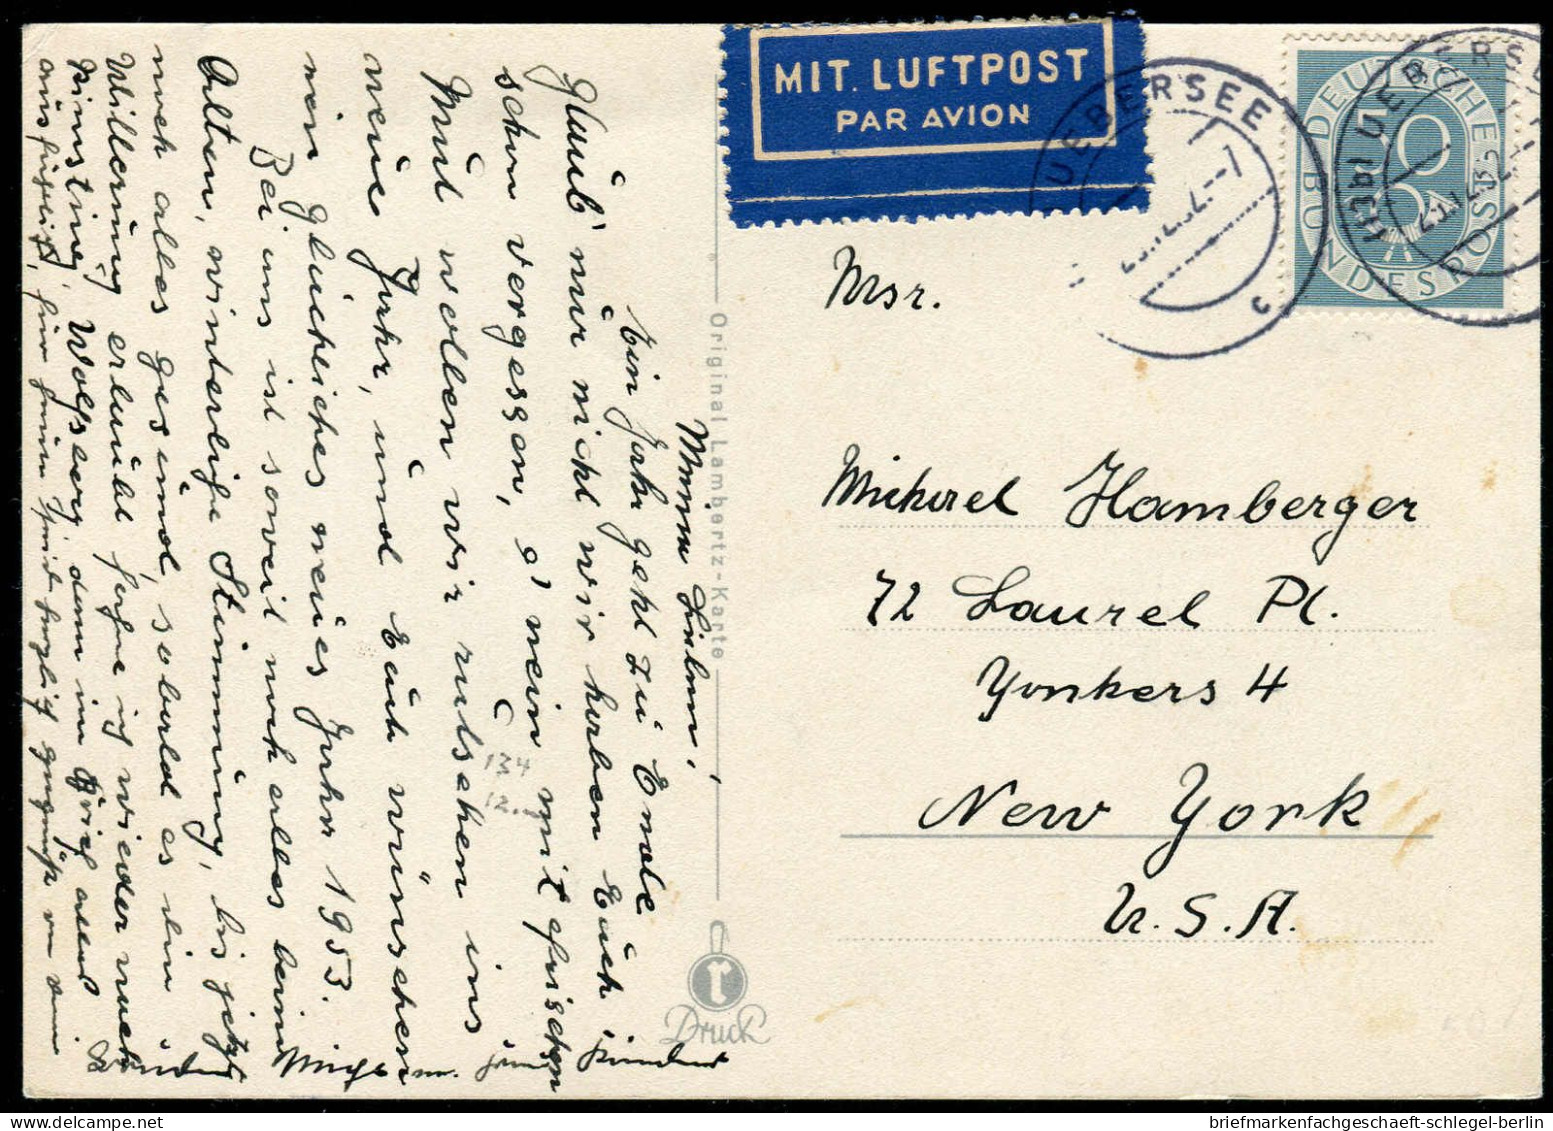 MIT LUFTPOST
PAR AVION
UEBERSEE
C
DEUTSCHE
BUNDESPOST
50
Msr.
Michael Hamberger
72 Laurel Pl.
Yonkers 4
New York
U.S.A.
Original Lambertz-Karte
Druck
134
Meine Lieben!
Ein Jahr geht zu Ende
Glaub' nur nicht wir haben Euch
schon vergessen, o' nein mit frischem
Mut wollen wir rutschen ins
neue Jahr, und Euch wünschen
ein glückliches neues Jahr 1953.
Bei uns ist soweit noch alles beim
Alten, winterliche Stimmung, bis jetzt
noch alles gesund, sobald es die
Witterung erlaubt fahre ich wieder nach
Wolfsberg, dann im Brief alles
briefmarkenfachgeschaeft-schlegel-berlin